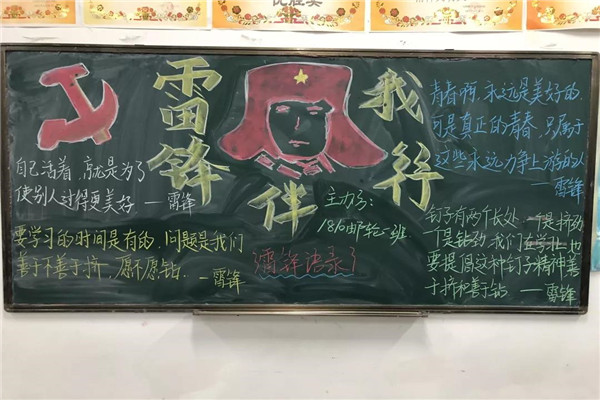 雷锋
伴
我行
自己活着,就是为了
使别人过得更美好 — 雷锋
要学习的时间是有的,问题是我们
善于不善于挤,愿不愿钻. — 雷锋
主力军:
1810邮轮2班
雷锋语录
青春啊,永远是美好的.
可是真正的青春,只属于
这些永远力争上游的人
— 雷锋
钉子有两个长处一是挤劲
一是钻劲我们在学习上也
要提倡这种钉子精神善
于挤和善于钻 — 雷锋